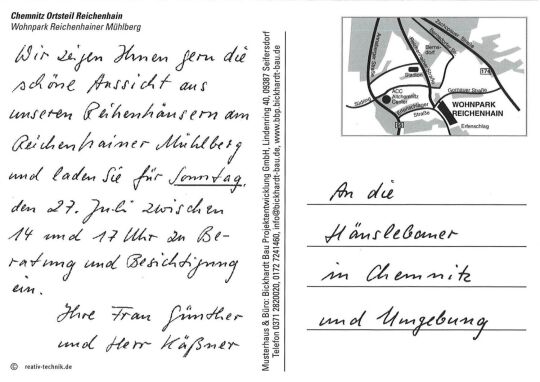 Chemnitz Ortsteil Reichenhain
Wohnpark Reichenhainer Mühlberg
Wir zeigen Ihnen gern die
schöne Aussicht aus
unseren Reihenhäusern am
Reichenhainer Mühlberg
und laden Sie für Sonntag,
den 27. Juli zwischen
14 und 17 Uhr zu Be-
ratung und Besichtigung
ein.
Ihre Frau Günther
und Herr Käßner
© reativ-technik.de
Musterhaus & Büro: Bickhardt Bau Projektentwicklung GmbH, Lindenring 40, 09387 Seifersdorf
Telefon 0371 2820020, 0172 7241460, info@bickhardt-bau.de, www.bbp.bickhardt-bau.de
Zschopauer Straße
Bernsdorfer Str.
Reichenhainer Straße
Annaberger Straße
Berns-
dorf
Stadion
174
Gornauer Straße
Südring
ACC
Altchemnitz
Center
Erfenschlager
Straße
WOHNPARK
REICHENHAIN
Erfenschlag
95
An die
Häuslebauer
in Chemnitz
und Umgebung